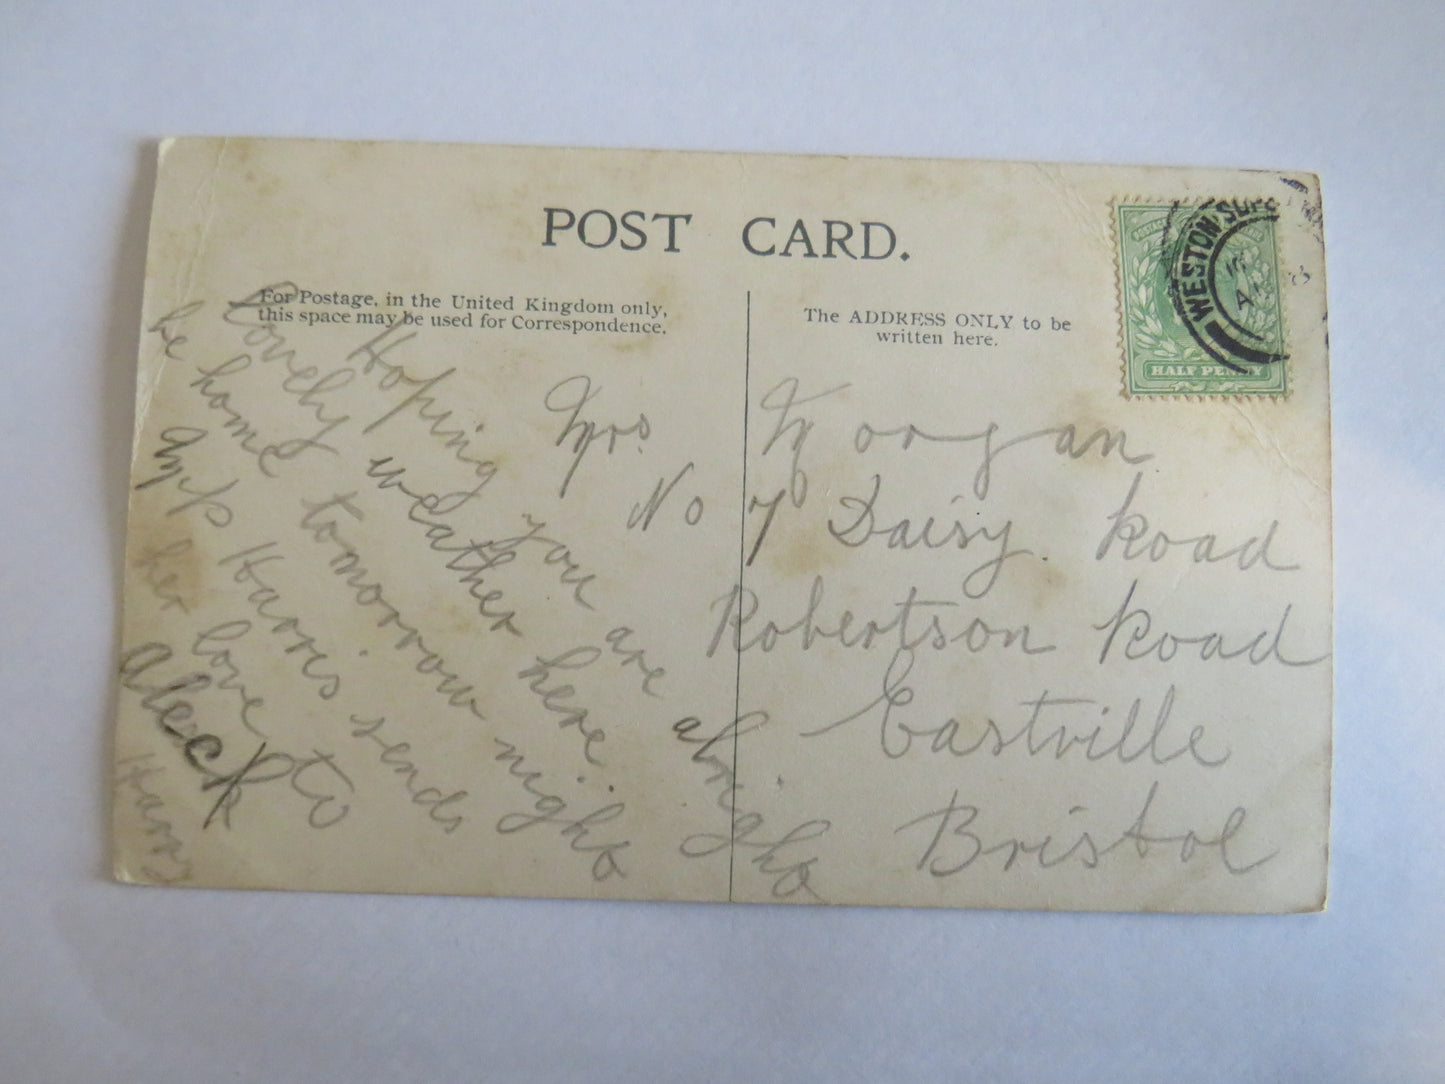 POST CARD.
For Postage, in the United Kingdom only,
this space may be used for Correspondence.
The ADDRESS ONLY to be
written here.
WESTON SUPE
HALF PENNY
Mrs. Morgan
No 7 Daisy. Road
Robertson Road
Eastville
Bristol
Hoping you are alright
Lovely weather here.
be home tomorrow night
Mrs Harris sends
her love to
Aleck
Harry